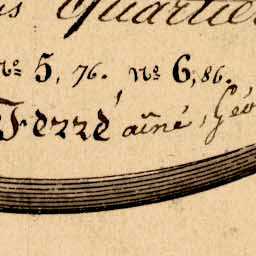 us Quartie
nº 5, 76. nº 6, 86.
Ferré aîné, Géo